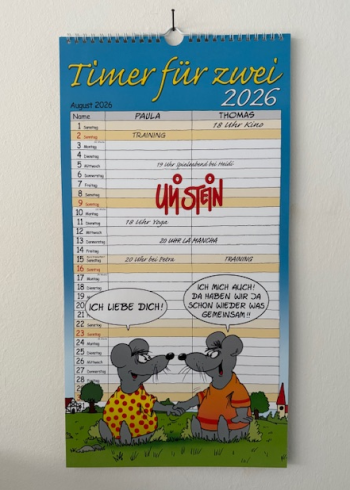 Timer für zwei
2026
August 2026
Name PAULA THOMAS
1 Samstag 18 Uhr Kino
2 Sonntag TRAINING
3 Montag
4 Dienstag
5 Mittwoch 19 Uhr Spieleabend bei Heidi
6 Donnerstag
7 Freitag
8 Samstag
9 Sonntag
10 Montag
11 Dienstag 18 Uhr Yoga
12 Mittwoch
13 Donnerstag 20 UHR LA MANCHA
14 Freitag
15 Samstag 20 Uhr bei Petra TRAINING
16 Sonntag
17 Montag
18 Dienstag
19 Mittwoch
20
21
22 Samstag
23 Sonntag
24 Montag
25 Dienstag
26 Mittwoch
27 Donnerstag
28
29
ULI STEIN
ICH LIEBE DICH!
ICH MICH AUCH!
DA HABEN WIR JA
SCHON WIEDER WAS
GEMEINSAM!!